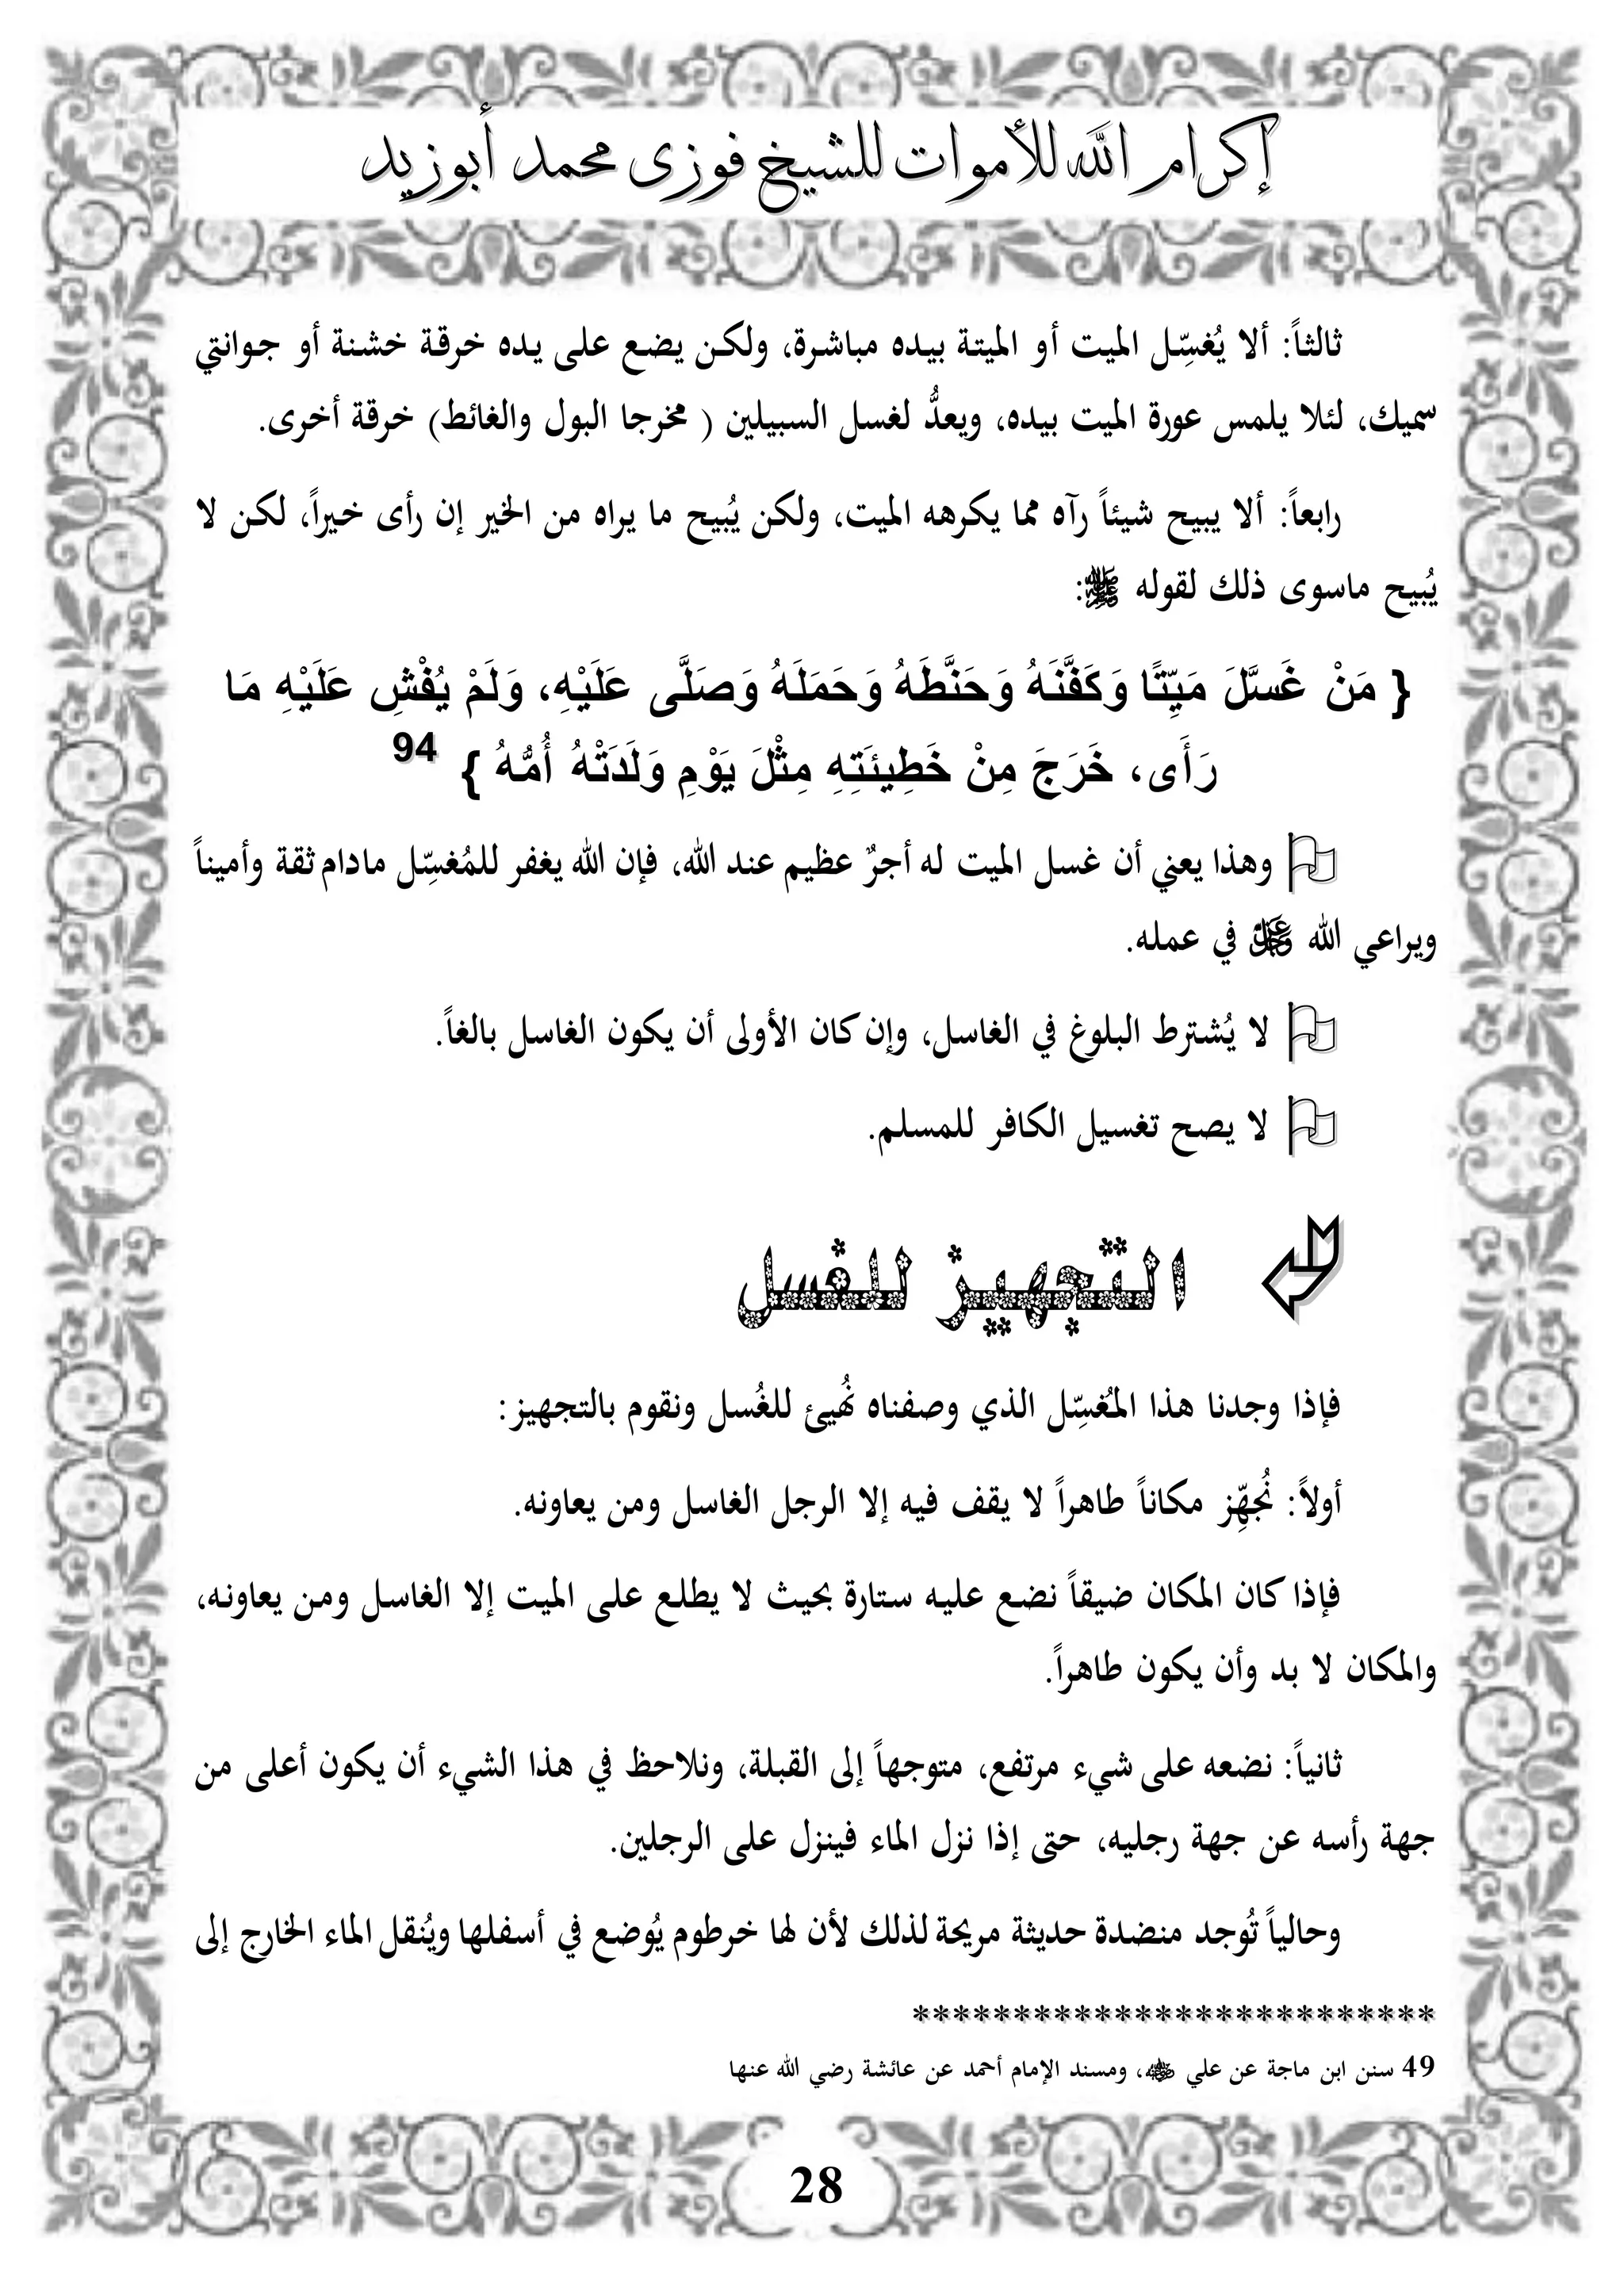 إكرام الله للأموات للشيخ فوزى محمد أبوزيد
ثالثاً: ألا يُغسِّل الميت أو الميتة بيده مباشرة، ولكن يضع على يده خرقة خشنة أو جوانتي
سميك، لئلا يلمس عورة الميت بيده، ويعدُّ لغسل السبيلين ( مخرجا البول والغائط) خرقة أخرى.
رابعاً: ألا يبيح شيئاً رآه مما يكرهه الميت، ولكن يُبيح ما يراه من الخير إن رأى خيراً، لكن لا
يُبيح ماسوى ذلك لقوله ﷺ:
{ مَنْ غَسَّلَ مَيِّتًا وَكَفَّنَهُ وَحَنَّطَهُ وَحَمَلَهُ وَصَلَّى عَلَيْهِ، وَلَمْ يُفْشِ عَلَيْهِ مَا
رَأَى، خَرَجَ مِنْ خَطِيئَتِهِ مِثْلَ يَوْمِ وَلَدَتْهُ أُمُّهُ } 94
وهذا يعني أن غسل الميت له أجرٌ عظيم عند الله، فإن الله يغفر للمُغسِّل مادام ثقة وأميناً
ويراعي الله عز وجل في عمله.
لا يُشترط البلوغ في الغاسل، وإن كان الأولى أن يكون الغاسل بالغاً.
لا يصح تغسيل الكافر للمسلم.
التجهيز للغسل
فإذا وجدنا هذا المُغسِّل الذي وصفناه نُهيئ للغُسل ونقوم بالتجهيز:
أولاً: نُجهِّز مكاناً طاهراً لا يقف فيه إلا الرجل الغاسل ومن يعاونه.
فإذا كان المكان ضيقاً نضع عليه ستارة بحيث لا يطلع على الميت إلا الغاسل ومن يعاونه،
والمكان لا بد وأن يكون طاهراً.
ثانياً: نضعه على شيء مرتفع، متوجهاً إلى القبلة، ونلاحظ في هذا الشيء أن يكون أعلى من
جهة رأسه عن جهة رجليه، حتى إذا نزل الماء فينزل على الرجلين.
وحالياً تُوجد منضدة حديثة مريحة لذلك لأن لها خرطوم يُوضع في أسفلها ويُنقل الماء الخارج إلى
**************************
49 سنن ابن ماجة عن علي رضي الله عنه، ومسند الإمام أحمد عن عائشة رضي الله عنها
28